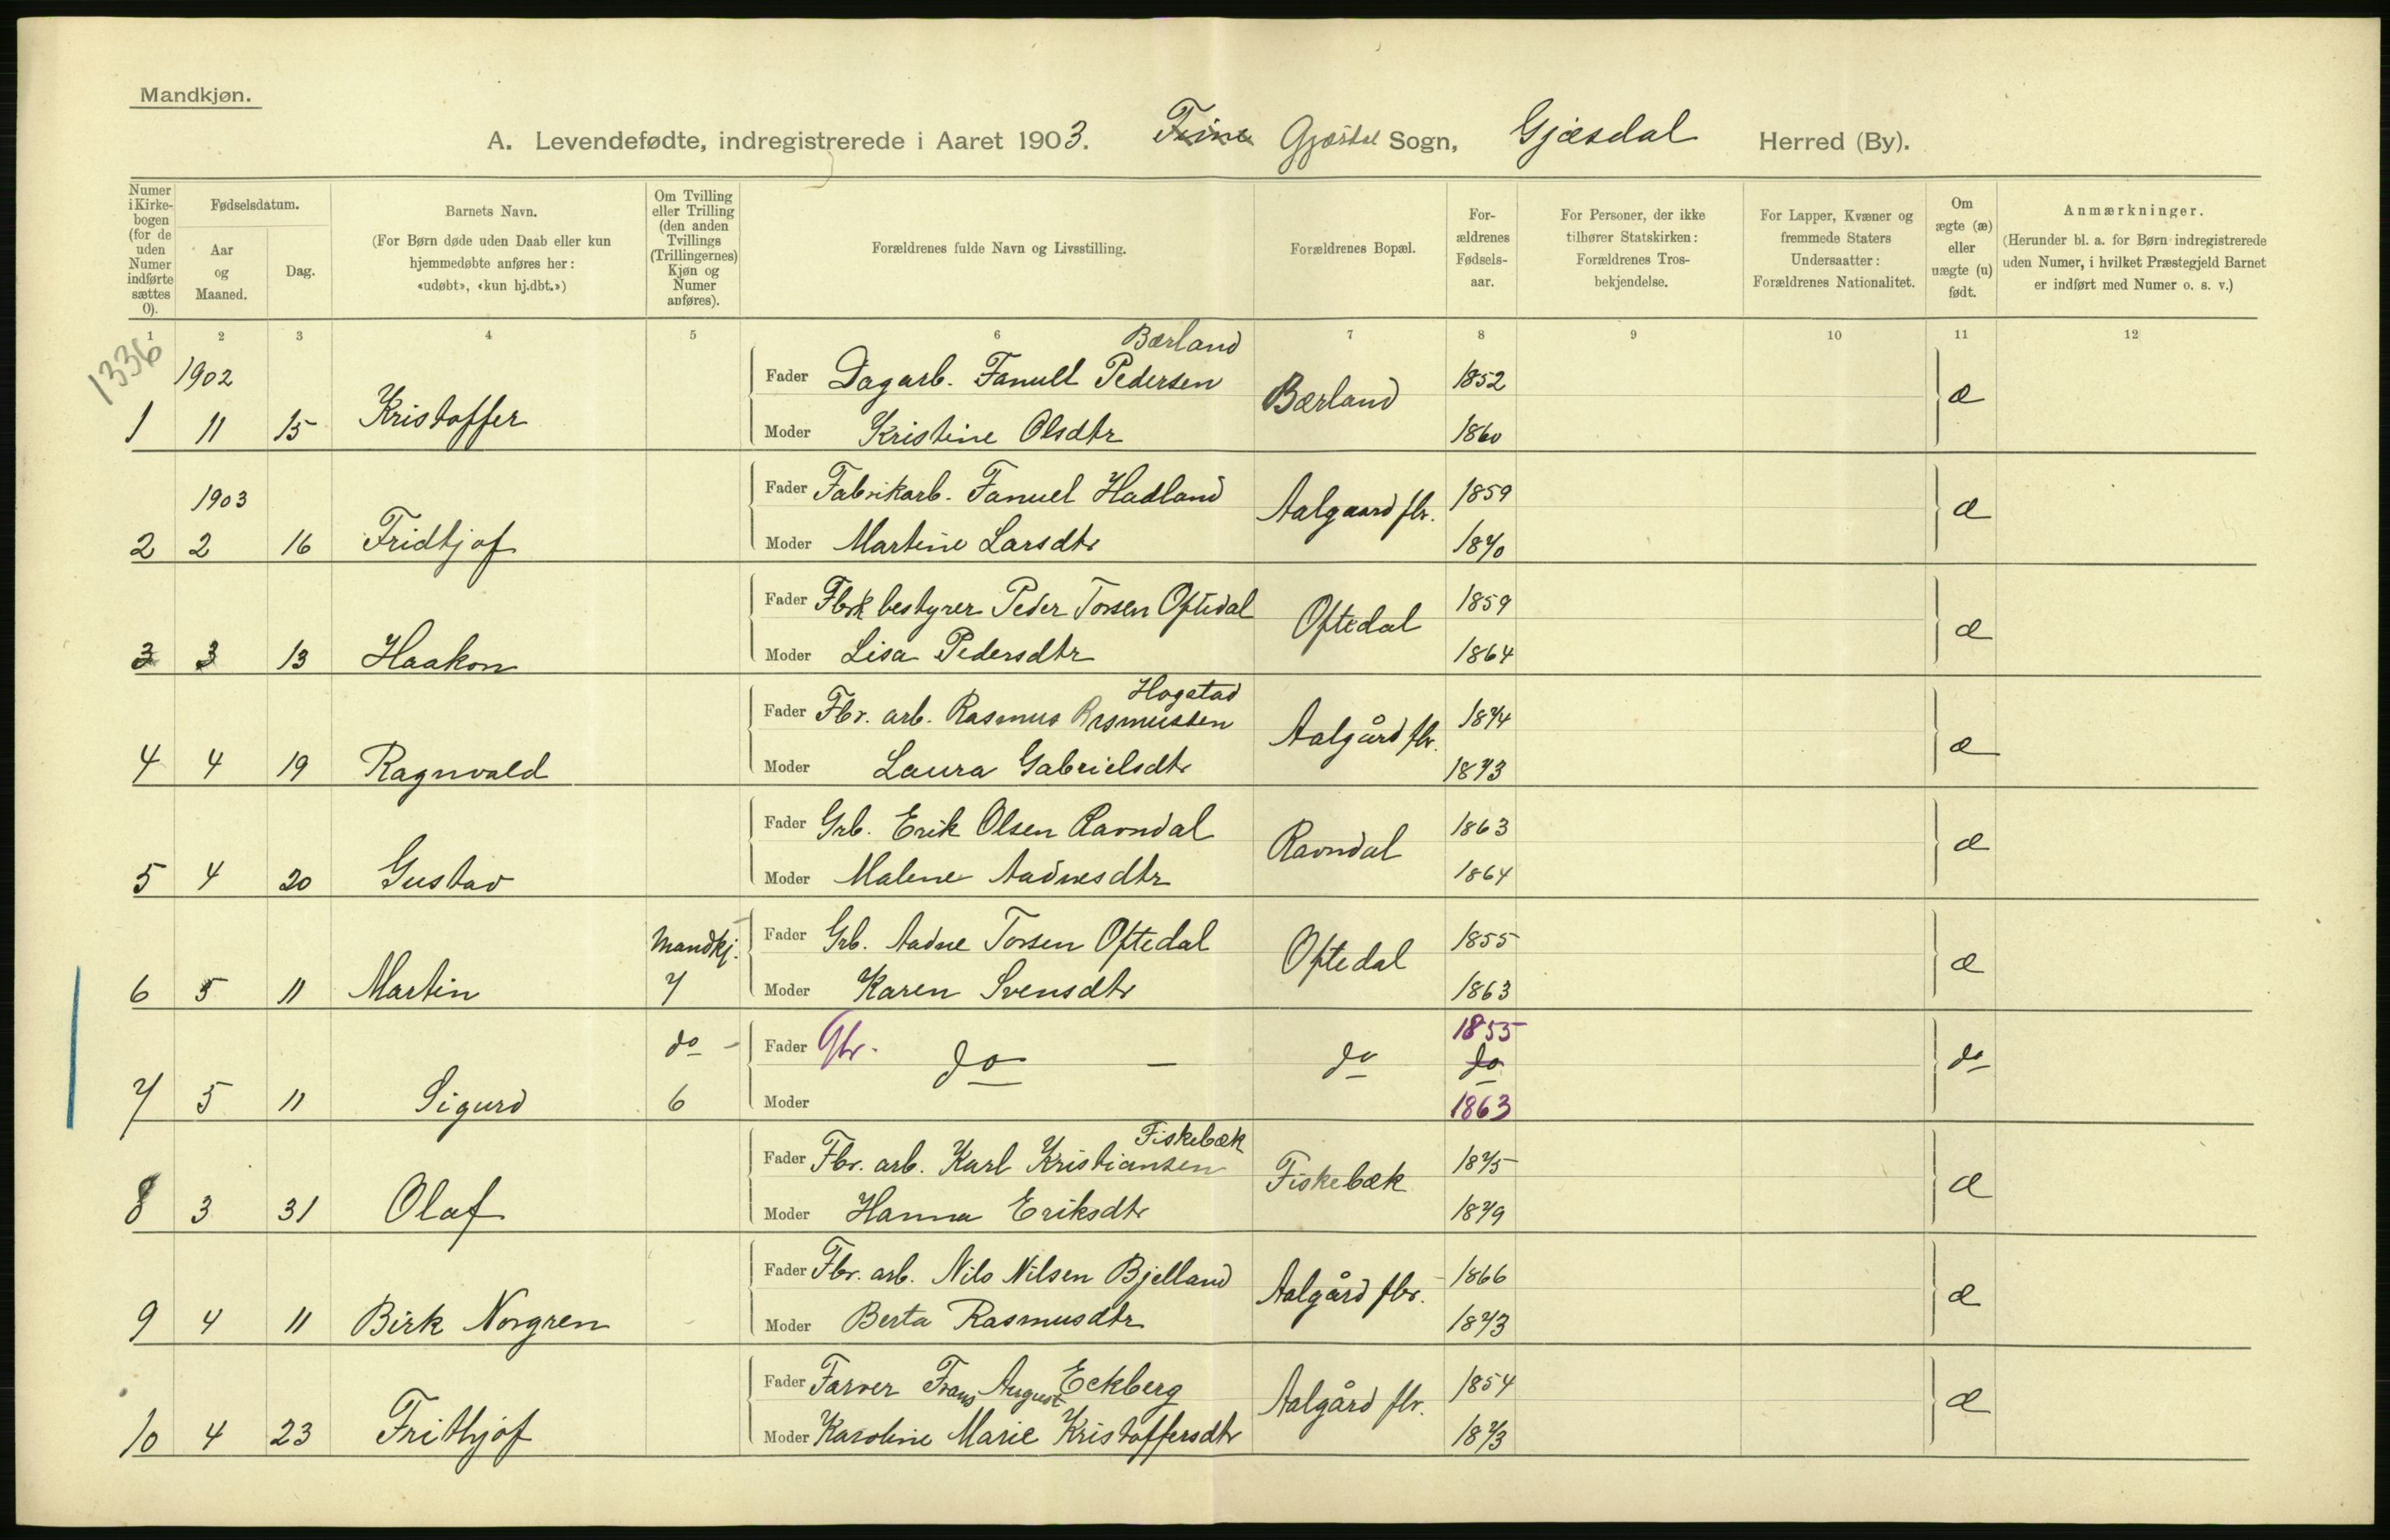 Mandkjøn.
A. Levendefødte, indregistrerede i Aaret 1903. Gjæsdal Sogn, Gjæsdal Herred (By).
Numer i Kirkebogen (for de uden Numer indførte sættes 0).
Fødselsdatum.
Aar og Maaned.
Dag.
Barnets Navn.
(For Børn døde uden Daab eller kun hjemmedøbte anføres her: «udøbt», «kun hj.dbt.»)
Om Tvilling eller Trilling (den anden Tvillings (Trillingernes) Kjøn og Numer anføres).
Forældrenes fulde Navn og Livsstilling.
Forældrenes Bopæl.
Forældrenes Fødselsaar.
For Personer, der ikke tilhører Statskirken: Forældrenes Trosbekjendelse.
For Lapper, Kvæner og fremmede Staters Undersaatter: Forældrenes Nationalitet.
Om ægte (æ) eller uægte (u) født.
Anmærkninger.
(Herunder bl. a. for Børn indregistrerede uden Numer, i hvilket Præstegjeld Barnet er indført med Numer o. s. v.)
1 2 3 4 5 6 7 8 9 10 11 12
1336
Bærland
1902 Fader Dagarb. Fanuel Pedersen Bærland 1852 æ
1 11 15 Kristoffer Moder Kristine Olsdtr 1860
1903 Fader Fabrikarb. Fanuel Hadland Aalgaard fbr. 1859 æ
2 2 16 Fridtjof Moder Martine Larsdtr 1870
Fader Fbrk bestyrer Peder Torsen Oftedal Oftedal 1859 æ
3 3 13 Haakon Moder Lisa Pedersdtr 1864
Hogstad
Fader Fbr. arb. Rasmus Rasmussen Aalgård fbr. 1874 æ
4 4 19 Ragnvald Moder Laura Gabrielsdtr 1873
Fader Grb. Erik Olsen Ravndal Ravndal 1863 æ
5 4 20 Gustav Moder Malene Aadnesdtr 1864
Mandkj. Fader Grb. Aadne Torsen Oftedal Oftedal 1855 æ
6 5 11 Martin 7 Moder Karen Svensdtr 1863
do - Fader Gbr. do - do 1855 do do
7 5 11 Sigurd 6 Moder 1863
Fiskebæk
Fader Fbr. arb. Karl Kristiansen Fiskebæk 1875 æ
8 3 31 Olaf Moder Hanna Eriksdtr 1879
Fader Fbr. arb. Nils Nilsen Bjelland Aalgård fbr. 1866 æ
9 4 11 Birk Norgren Moder Berta Rasmusdtr 1873
Fader Farver Frans August Eckberg Aalgård fbr. 1854 æ
10 4 23 Frithjof Moder Karoline Marie Kristoffersdtr 1873